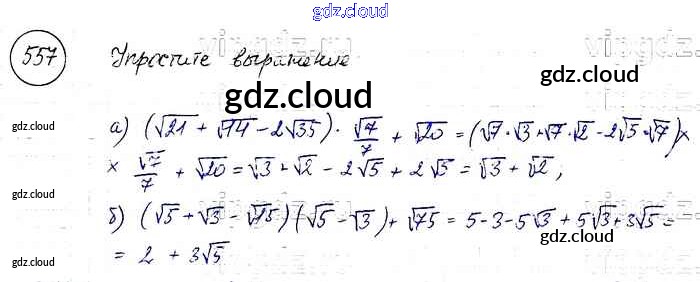 gdz.cloud
557 Упростите выражение
gdz.cloud
gdz.cloud gdz.cloud
а) (√21 + √14 - 2√35) · √7/7 + √20 = (√7·√3 + √7·√2 - 2√5·√7) ×
× √7/7 + √20 = √3 + √2 - 2√5 + 2√5 = √3 + √2;
gdz.cloud gdz.cloud
б) (√5 + √3 - √15)(√5 - √3) + √75 = 5-3-5√3 + 5√3 + 3√5 =
gdz.cloud
= 2 + 3√5
gdz.cloud